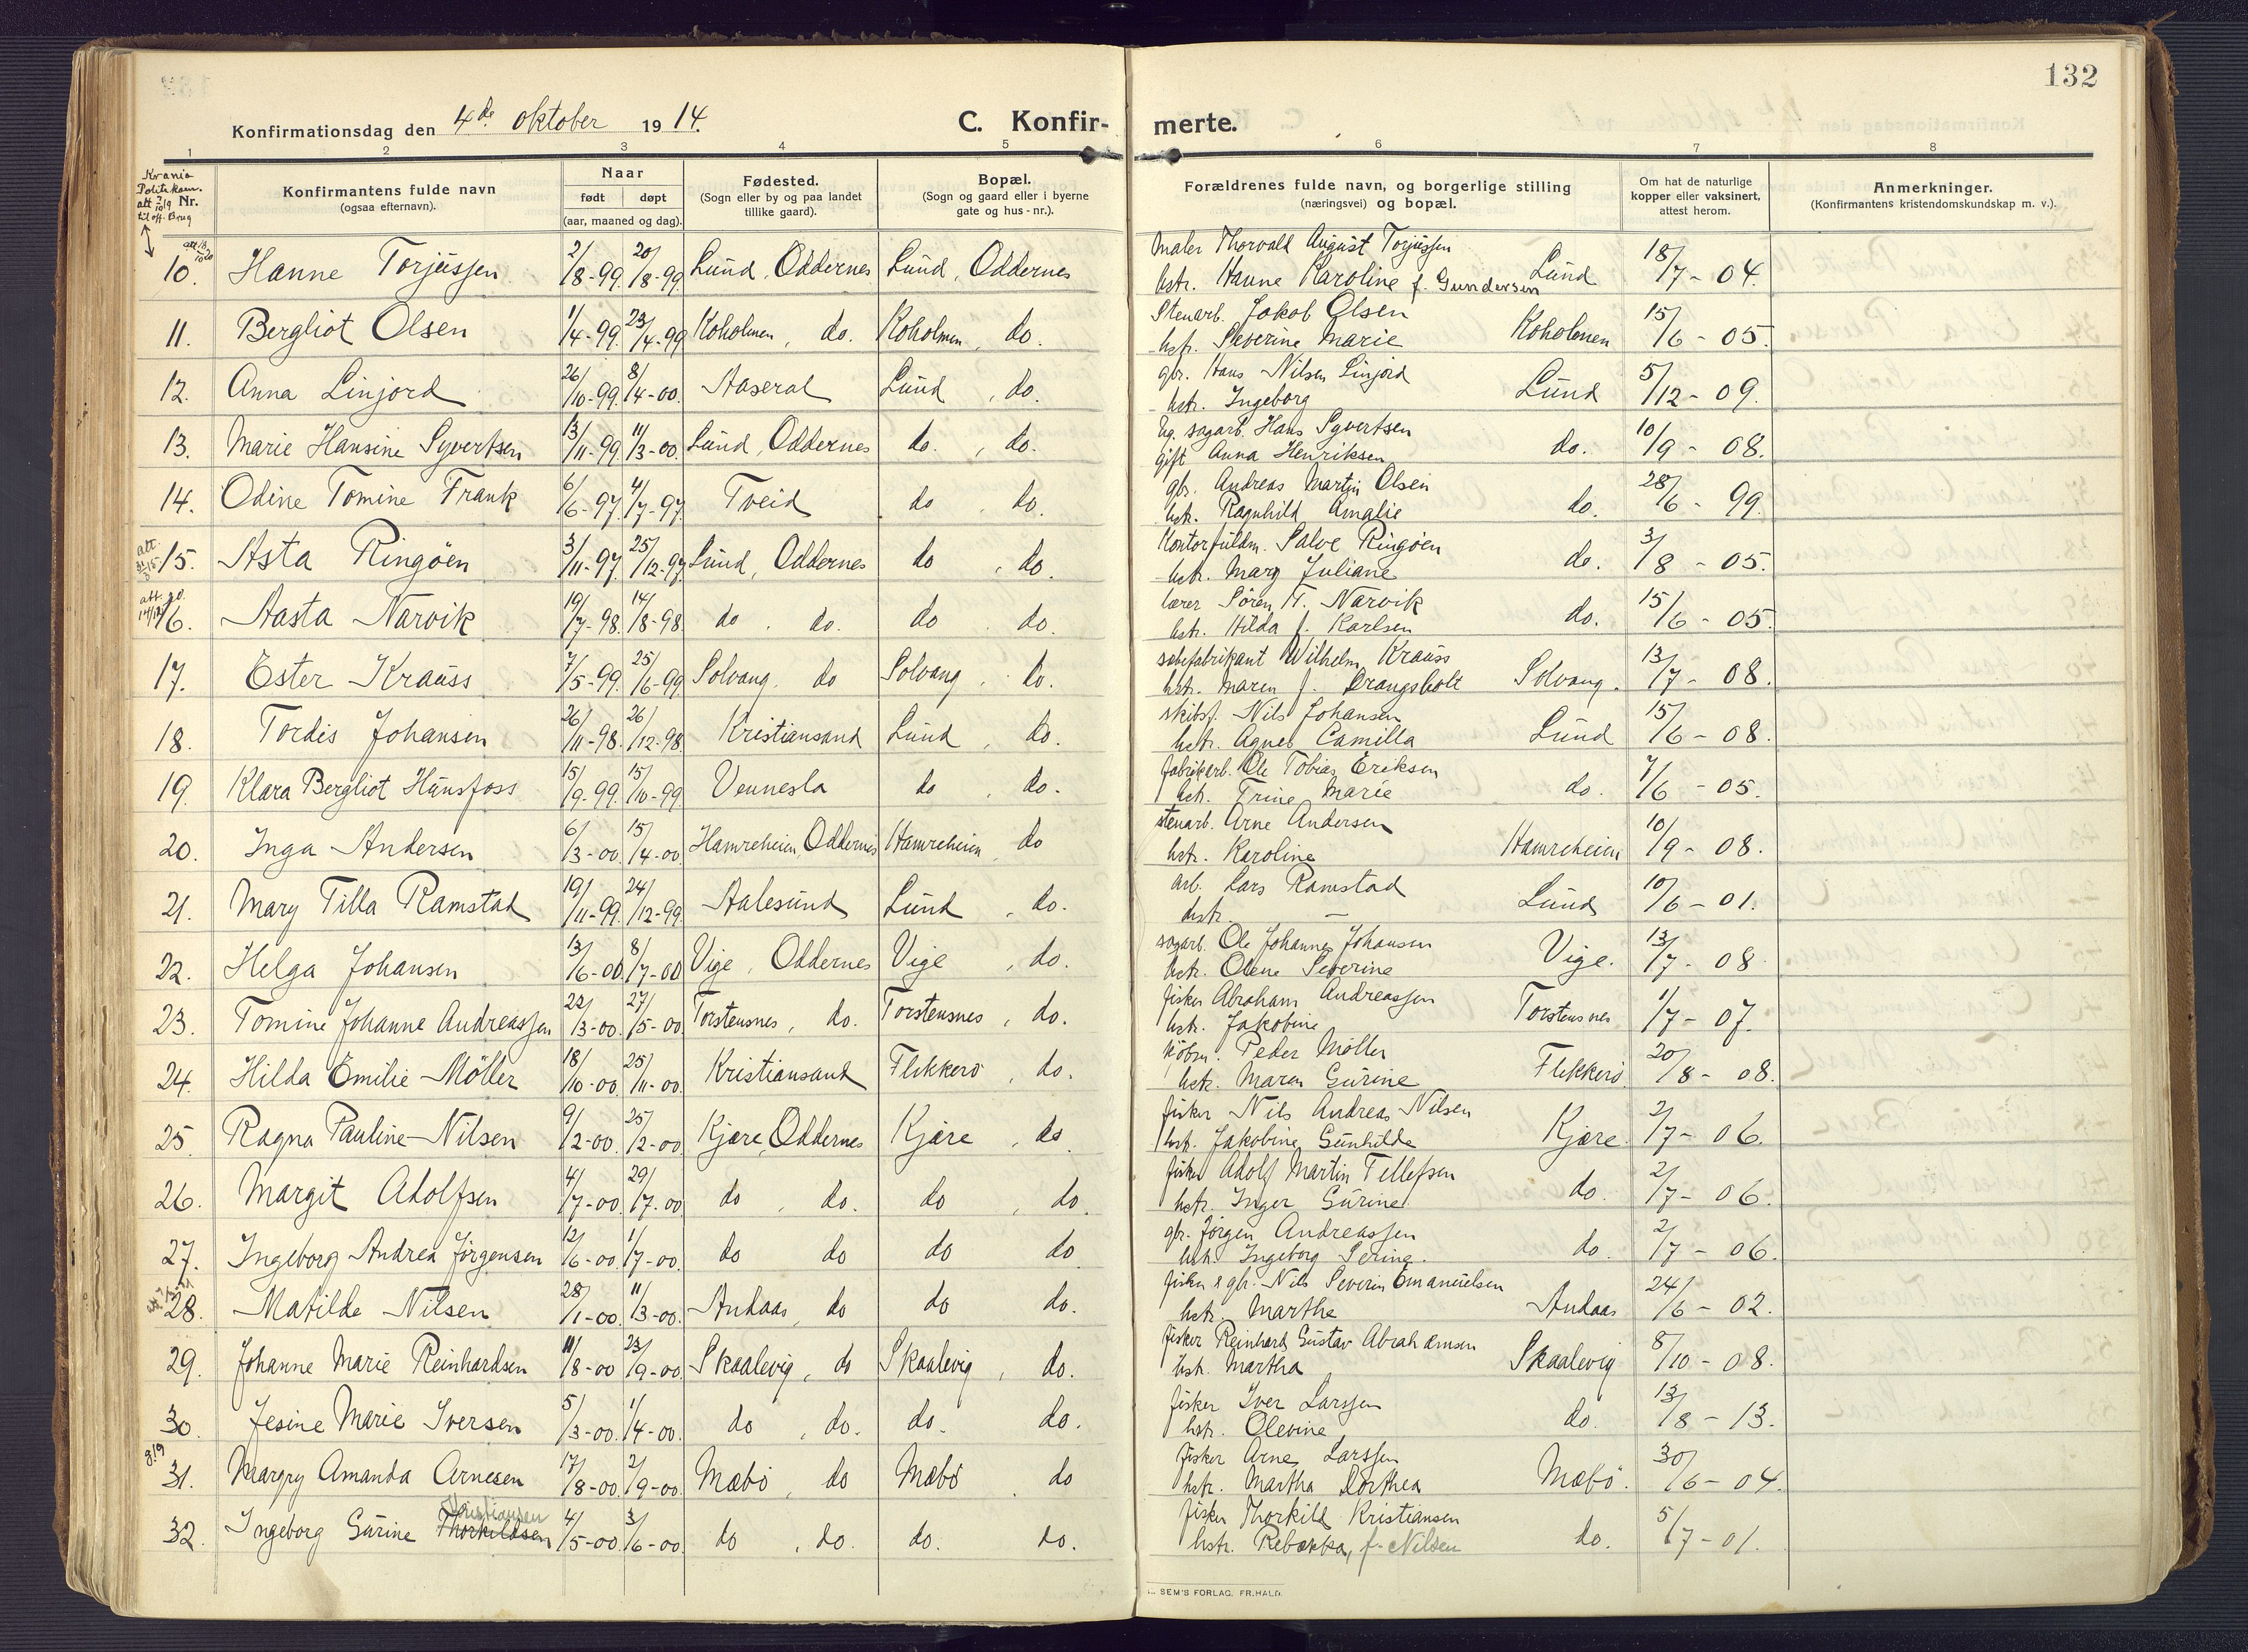 132
Konfirmationsdag den 4de oktober 1914.
C. Konfir-
merte.
1 2 3 4 5 6 7 8
Krania Politikam. att 2/10 19 til off. Brug
Nr.
Konfirmantens fulde navn
(ogsaa efternavn).
Naar
født døpt
(aar, maaned og dag).
Fødested.
(Sogn eller by og paa landet
tillike gaard).
Bopæl.
(Sogn og gaard eller i byerne
gate og hus-nr.).
Forældrenes fulde navn, og borgerlige stilling
(næringsvei) og bopæl.
Om hat de naturlige
kopper eller vaksinert,
attest herom.
Anmerkninger.
(Konfirmantens kristendomskundskap m. v.).
10. Hanne Torjussen 2/8-99. 20/8-99 Lund, Oddernes Lund, Oddernes
Maler Thorvald August Torjussen
hstr. Hanne Karoline f. Gundersen Lund 18/7-04.
11. Bergliot Olsen 1/4-99. 23/4-99 Koholmen, do. Koholmen, do.
Stenarb. Jakob Olsen
hstr. Severine Marie Koholmen 15/6-05.
12. Anna Linjord 26/10-99. 8/4-00. Aaseral Lund, do.
gbr. Hans Nilsen Linjord
hstr. Ingeborg Lund 5/12-09.
13. Marie Hansine Syvertsen 13/11-99. 11/3-00. Lund, Oddernes do., do.
Ug. sagarb. Hans Syvertsen
gift Anna Henriksen do. 10/9-08.
14. Odine Tomine Frank 6/6-97. 4/7-97. Tveid do do.
gbr. Andreas Martin Olsen
hstr. Ragnhild Amalie do. 28/6-99.
att.
15. Asta Ringøen 3/11-97. 25/12-97 Lund, Oddernes do, do.
Kontorfuldm. Salve Ringøen
hstr. Mary Juliane do. 3/8-05.
att.
16. Aasta Narvik 19/7-98. 14/8-98 do. do. do. do.
lærer Søren T. Narvik
hstr. Hilda f. Karlsen do. 15/6-05.
17. Ester Krauss 7/5-99. 25/6-99 Solvang, do Solvang, do.
sæbefabrikant Wilhelm Krauss
hstr. Maren f. Drangsholt Solvang. 13/7-08.
18. Tordis Johansen 26/11-98. 26/12-98 Kristiansand Lund, do.
skibsf. Nils Johansen
hstr. Agnes Camilla Lund 15/6-08.
19. Klara Bergliot Hunsfoss 15/9-99. 15/10-99 Vennesla do, do.
fabrikarb. Ole Tobias Eriksen
hstr. Trine Marie do. 7/6-05.
20. Inga Andersen 6/3-00. 15/4-00. Hamreheien, Oddernes Hamreheien, do
stenarb. Arne Andersen
hstr. Karoline Hamreheien 10/9-08.
21. Mary Tilla Ramstad 19/11-99. 24/12-99. Aalesund Lund, do.
arb. Lars Ramstad
hstr. — Lund 10/6-01.
22. Helga Johansen 13/6-00. 8/7-00 Vige, Oddernes Vige, do.
sagarb. Ole Johannes Johansen
hstr. Olene Severine Vige. 13/7-08
23. Tomine Johanne Andreassen 22/3-00. 27/5-00. Torstensnes, do. Torstensnes, do.
fisker Abraham Andreassen
hstr. Jakobine Torstensnes 1/7-07.
24. Hilda Emilie Möller 18/10-00. 25/11-00. Kristiansand Flekkerö, do.
kjöbm. Peder Möller
hstr. Maren Gurine Flekkerö. 20/8-08.
25. Ragna Pauline Nilsen 9/2-00. 25/2-00. Kjære, Oddernes Kjære, do
fisker Nils Andreas Nilsen
hstr. Jakobine Gunhilde Kjære. 2/7-06.
26. Margit Adolfsen 4/7-00. 29/7-00. do, do. do, do.
fisker Adolf Martin Tellefsen
hstr. Inger Gurine do. 2/7-06.
27. Ingeborg Andrea Jörgensen 12/6-00. 1/7-00. do do do do
gbr. Jörgen Andreassen
hstr. Ingeborg Serine. do. 2/7-06.
28. Matilde Nilsen 28/1-00. 11/3-00. Andaas, do do do.
fisker & gbr. Nils Severin Emanuelsen
hstr. Marthe Andaas 24/6-02.
29. Johanne Marie Reinhardsen 11/8-00 23/9-00. Skaalevig, do Skaalevig, do.
fisker Reinhard Gustav Abrahamsen
hstr. Martha Skaalevig 8/10-08.
30. Jesine Marie Iversen 5/3-00. 1/4-00. do, do. do. do.
fisker Iver Larssen
hstr. Olevine do. 13/8-13.
31. Margry Amanda Arnesen 17/8-00. 2/9-00. Mæbö, do Mæbö. do
fisker Arne Larssen
hstr. Martha Dorthea Mæbö. 30/6-04.
Kristiansen
32. Ingeborg Gurine Thorkildsen 4/5-00. 3/6-00. do, do. do. do.
fisker Thorkild Kristiansen
hstr. Rebekka, f. Nilsen do. 5/7-01.
SEM'S FORLAG, FR.HALD.